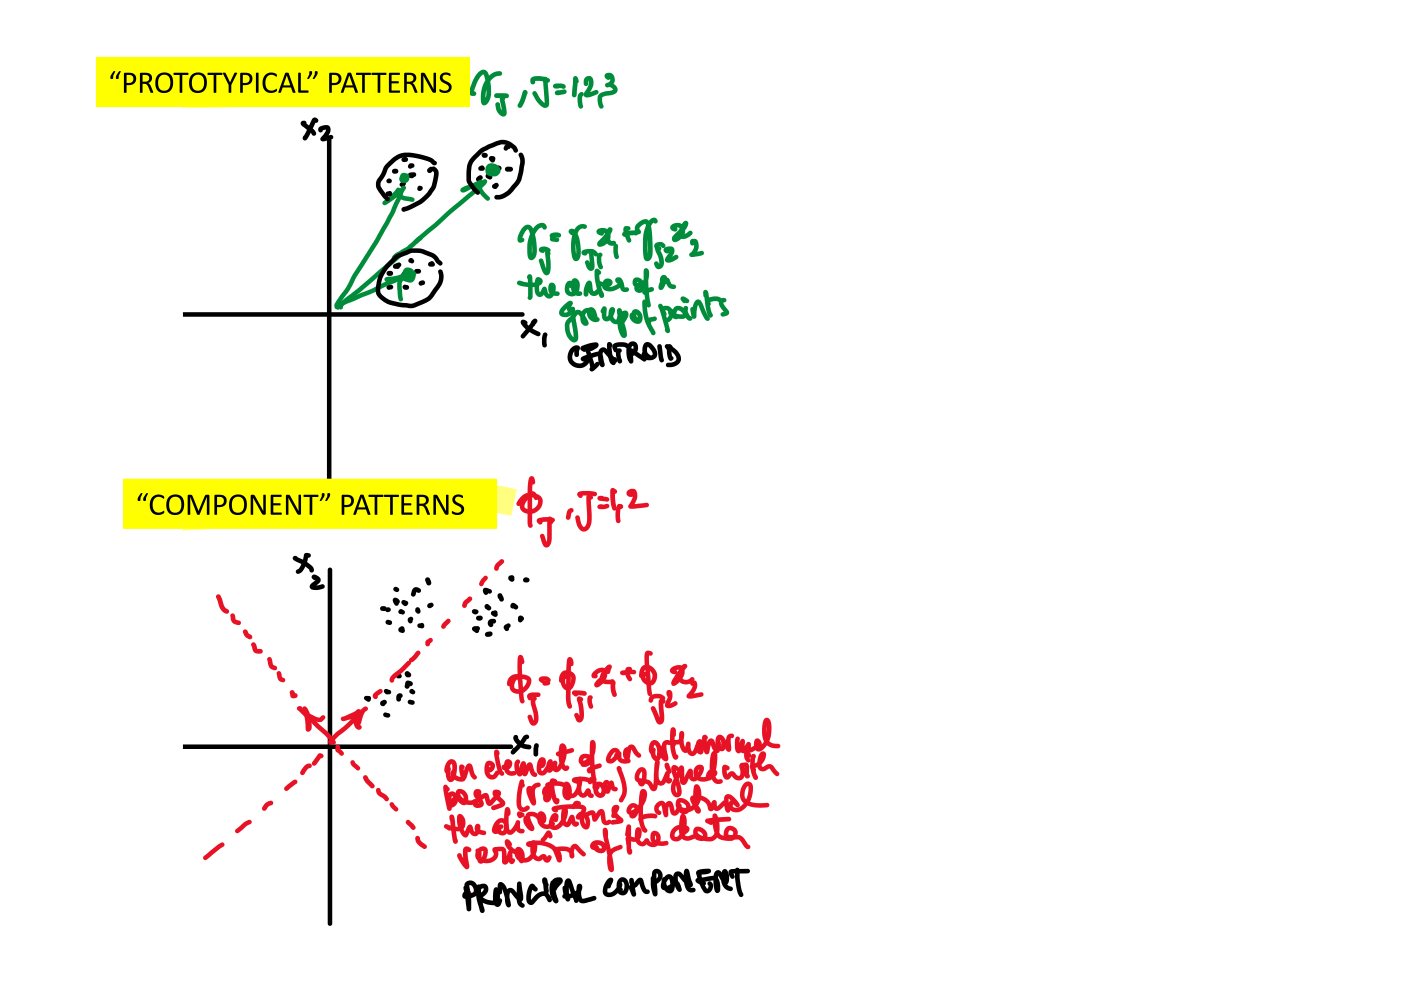 “PROTOTYPICAL” PATTERNS γ_J , J=1,2,3
x₂
γ_J = γ_J1 x₁ + γ_J2 x₂
the center of a
group of points
x₁
CENTROID
“COMPONENT” PATTERNS ϕ_J , J=1,2
x₂
ϕ_J = ϕ_J1 x₁ + ϕ_J2 x₂
x₁
an element of an orthonormal
basis (rotation) aligned with
the directions of natural
variation of the data
PRINCIPAL COMPONENT